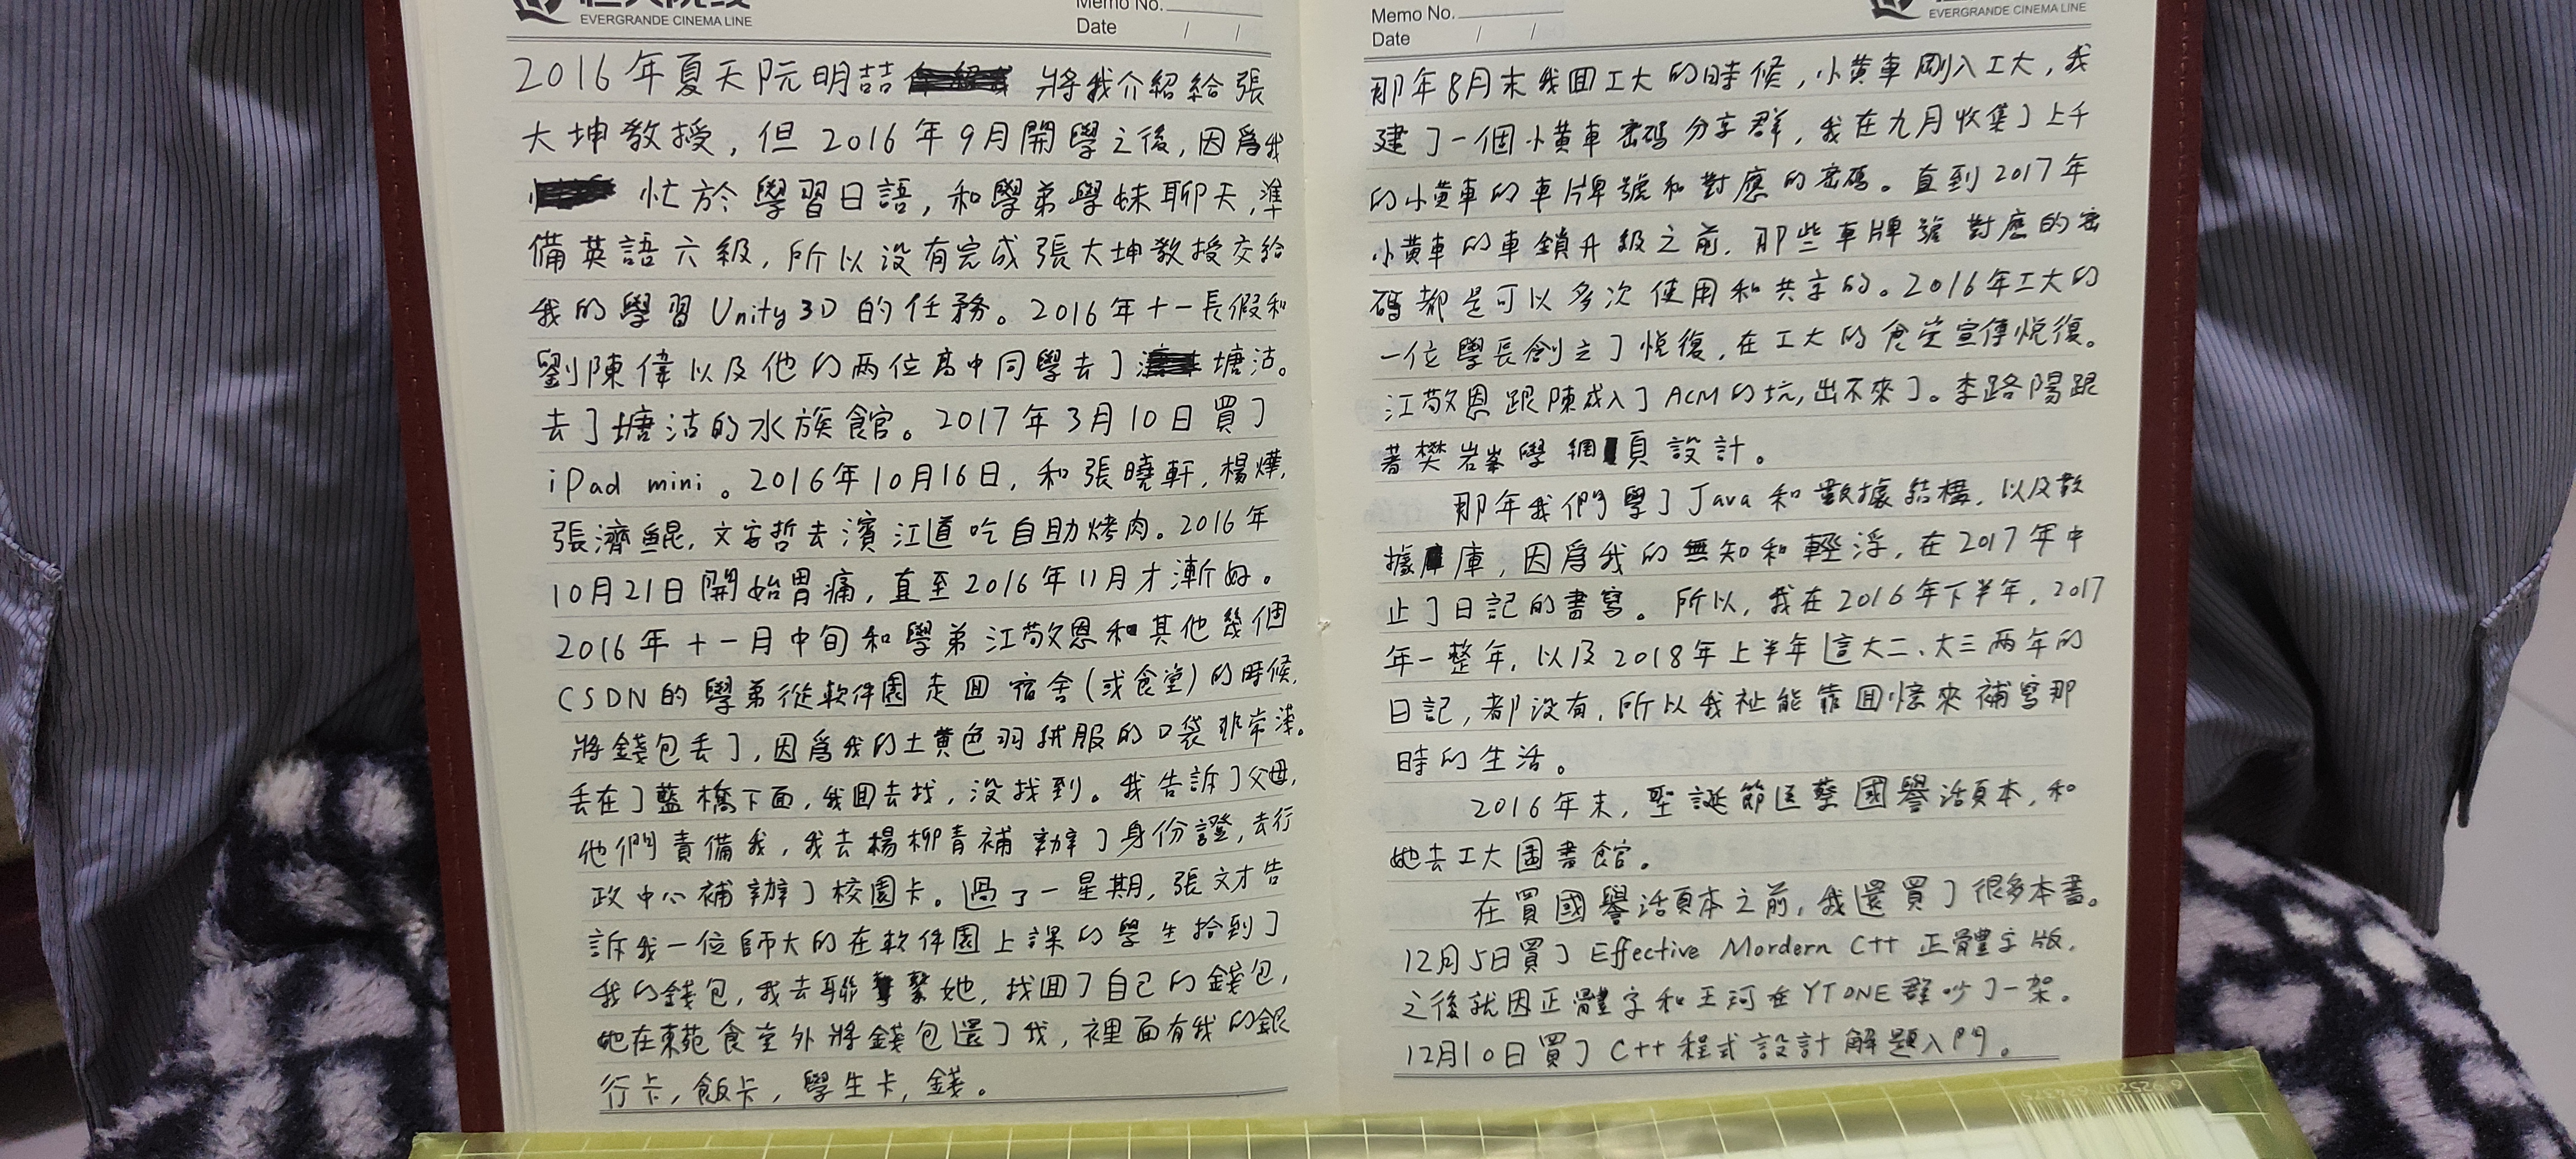 EVERGRANDE CINEMA LINE
Memo No.
Date / /
2016年夏天阮明喆 將我介紹給張
大坤教授,但2016年9月開學之後,因爲我
忙於學習日語,和學弟學妹聊天,準
備英語六級,所以没有完成張大坤教授交給
我的學習Unity 3D的任務。2016年十一長假和
劉陳偉以及他的兩位高中同學去了 塘沽。
去了塘沽的水族館。2017年3月10日買了
iPad mini。2016年10月16日,和張曉軒,楊燁,
張濟鯤,文宇哲去濱江道吃自助烤肉。2016年
10月21日開始胃痛,直至2016年11月才漸好。
2016年十一月中旬和學弟江敬恩和其他幾個
CSDN的學弟從軟件園走回宿舍(或食堂)的時候,
將錢包丢了,因爲我的土黄色羽絨服的口袋非常淺。
丢在了藍橋下面,我回去找,没找到。我告訴了父母,
他們責備我,我去楊柳青補辦了身份證,去行
政中心補辦了校園卡。過了一星期,張文才告
訴我一位師大的在軟件園上課的學生拾到了
我的錢包,我去聯繫她,找回了自己的錢包,
她在東苑食堂外將錢包還了我,裡面有我的銀
行卡,飯卡,學生卡,錢。
EVERGRANDE CINEMA LINE
Memo No.
Date / /
那年8月末我回工大的時候,小黄車剛入工大,我
建了一個小黄車密碼分享群,我在九月收集了上千
的小黄車的車牌號和對應的密碼。直到2017年
小黄車的車鎖升級之前,那些車牌號對應的密
碼都是可以多次使用和共享的。2016年工大的
一位學長創立了悦復,在工大的食堂宣傳悦復。
江敬恩跟陳成入了ACM的坑,出不來了。李路陽跟
著樊岩峯學網頁設計。
那年我們學了Java和數據結構,以及數
據庫,因爲我的無知和輕浮,在2017年中
止了日記的書寫。所以,我在2016年下半年,2017
年一整年,以及2018年上半年這大二、大三兩年的
日記,都没有,所以我祇能靠回憶來補寫那
時的生活。
2016年末,聖誕節送蔡國譽活頁本,和
她去工大圖書館。
在買國譽活頁本之前,我還買了很多本書。
12月5日買了Effective Mordern C++正體字版,
之後就因正體字和王珂在YTONE群吵了一架。
12月10日買了C++程式設計解題入門。